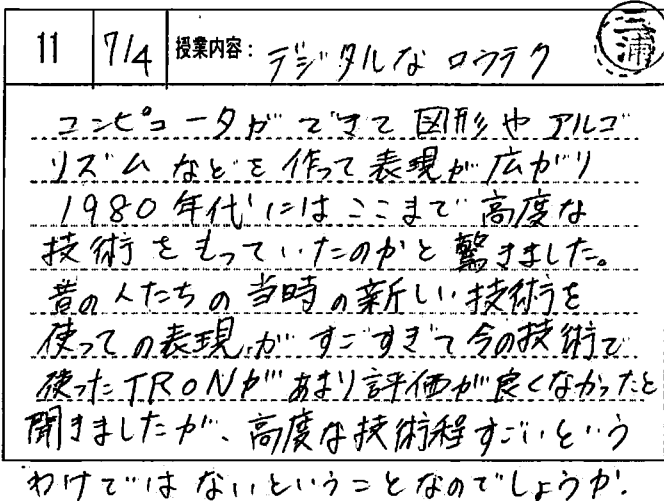 11 7/4 授業内容: デジタルな ロウテク 三浦
コンピュータができて図形やアルゴ
リズムなどを作って表現が広がり
1980年代にはここまで高度な
技術をもっていたのかと驚きました。
昔の人たちの当時の新しい技術を
使っての表現がすごすぎて今の技術で
使ったTRONがあまり評価が良くなかったと
聞きましたが、高度な技術程すごいという
わけではないということなのでしょうか.